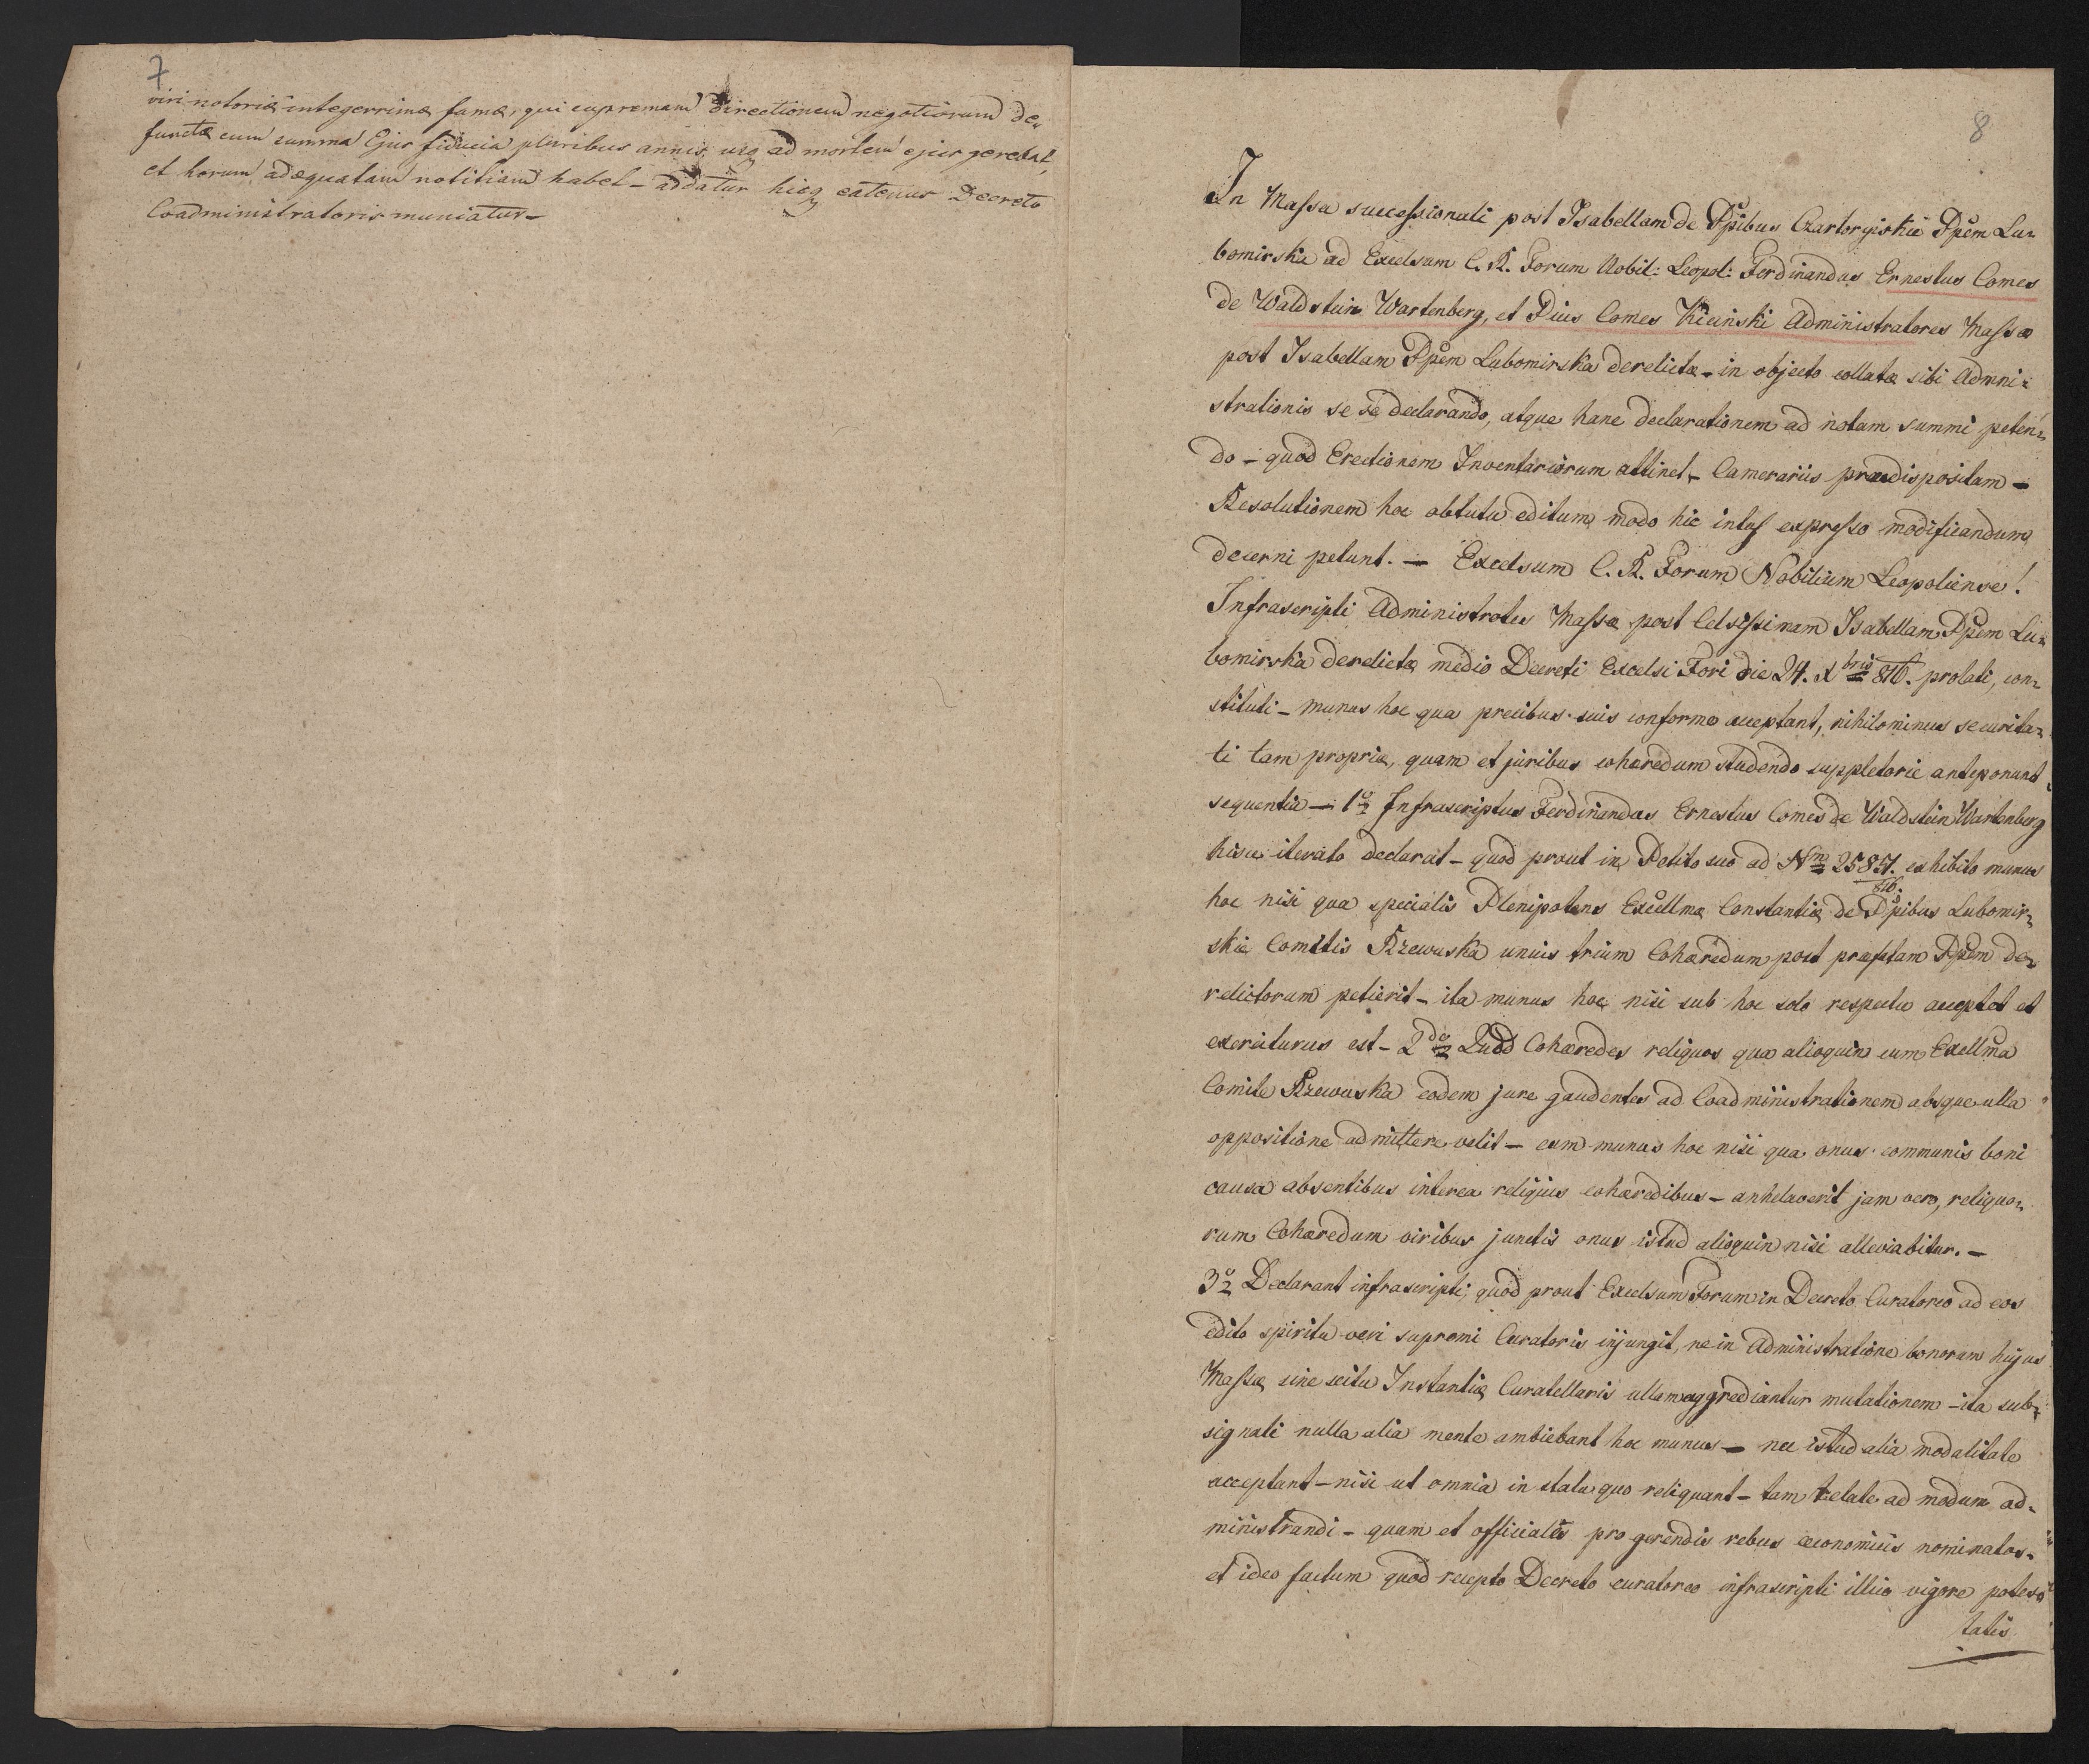 7
viri notoriæ integerrimæ famæ, qui supremam directionem negotiorum de„
functæ cum summa Ejus fiducia pluribus annis usq ad mortem ejus gerebat,
et horum adæquatam notitiam habet – addatur hicq eatenus Decreto
Coadministratoris muniatur –
8
In Massa successionali post Isabellam de Ppibus Czartoryiskie Ppem Lu„
bomirska ad Excelsum C. R. Forum Nobil: Leopol: Ferdinandus Ernestus Comes
de Waldstein Wartenberg, et Pius Comes Kiciński Administratores Massæ
post Isabellam Ppem Lubomirska derelictæ – in objecto collatæ sibi Admni„
strationis se se declarando, atque hanc declarationem ad notam summi peten„
do – quod Erectionem Inventariorum attinet – Camerariis prædispositam –
Resolutionem hoc obtutu editum modo hic intus expresso modificandum
decerni petunt. – Excelsum C. R. Forum Nobilium Leopoliense!
Infrascripti Administrates Massæ post Celsissimam Isabellam Ppem Lu„
bomirska derelictæ medio Decreti Excelsi Fori die 24. Xbris 816. prolati, con„
stituti – munus hoc qua precibus suis conforme acceptant, nihilominus securita„
ti tam propriæ, quam et juribus cohæredum studendo suppletorie anteponunt
sequentia – 1o Infrascriptus Ferdinandus Ernestus Comes de Waldstein Wartenberg
hisce iterato declarat – quod prout in Petito suo ad Nm 25857. exhibito munus
816.
hoc nisi qua specialis Plenipotens Excellmæ Constantiæ de Ppibus Lubomir„
skie Comitis Rzewuska unius trium Cohæredum post præfatam Ppem de„
relictorum petierit – ita munus hoc nisi sub hoc solo respectu acceptet et
exerciturus est – 2do Quod Cohæredes reliquos qua alioquin cum Exellma
Comite Rzewuska eodem jure gaudentes ad Coadministrationem absque ulla
oppositione admittere velit – cum munus hoc nisi qua onus communis boni
causa absentibus interea reliquis cohæredibus – anhelaverit jam vero, reliquo„
rum Cohæredum viribus junctis onus istud alioquin nisi alleviabitur. –
3o Declarant infrascripti, quod prout Excelsum Forum in Decreto Curatoreo ad eos
edito spiritu veri supremi Curatoris injungit, ne in Administratione bonorum hujus
Massæ sine scitu Instantiæ Curatellaris ullam aggrediantur mutationem – ita sub„
signati nulla alia mente ambiebant hoc munus – nec istud alia modalitate
acceptant – nisi ut omnia in statu quo reliquant – tam relate ad modum ad„
ministrandi – quam et officiales pro gerendis rebus œconomicis nominatos„
et ideo factum quod recepto Decreto curatoreo infrascripti illico vigore potes„
tatis